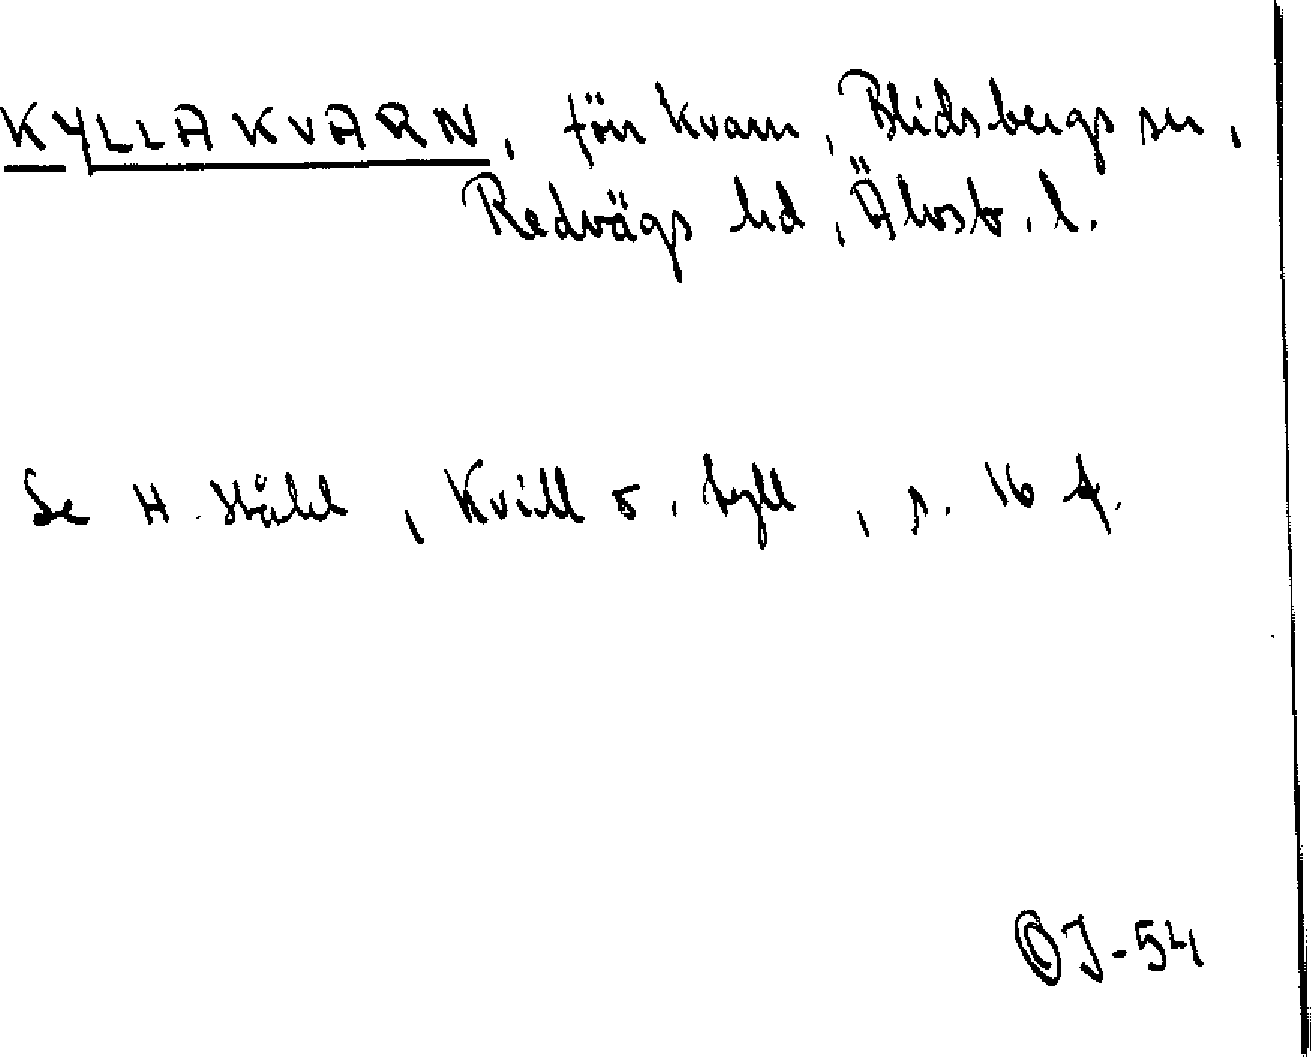 KYLLAKVARN, förr kvarn, Blidsbergs sn,
Redvägs hd, Älvsb. l.
Se H. Ståhl, Kvill o. tyll, s. 16 f.
OJ-54